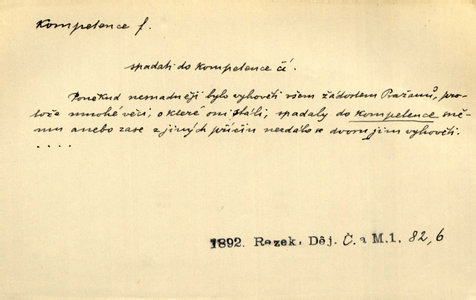 Kompetence f.
spadati do kompetence čí.
Poněkud nesnadněji bylo vyhověti všem žádostem Pražanů, pro-
tože mnohé věci, o které oni stáli, spadaly do kompetence sně-
mu anebo zase z jiných příčin nezdálo se dvoru jim vyhověti.
. . . .
1892. Rezek, Děj. Č. a M. 1. 82, 6